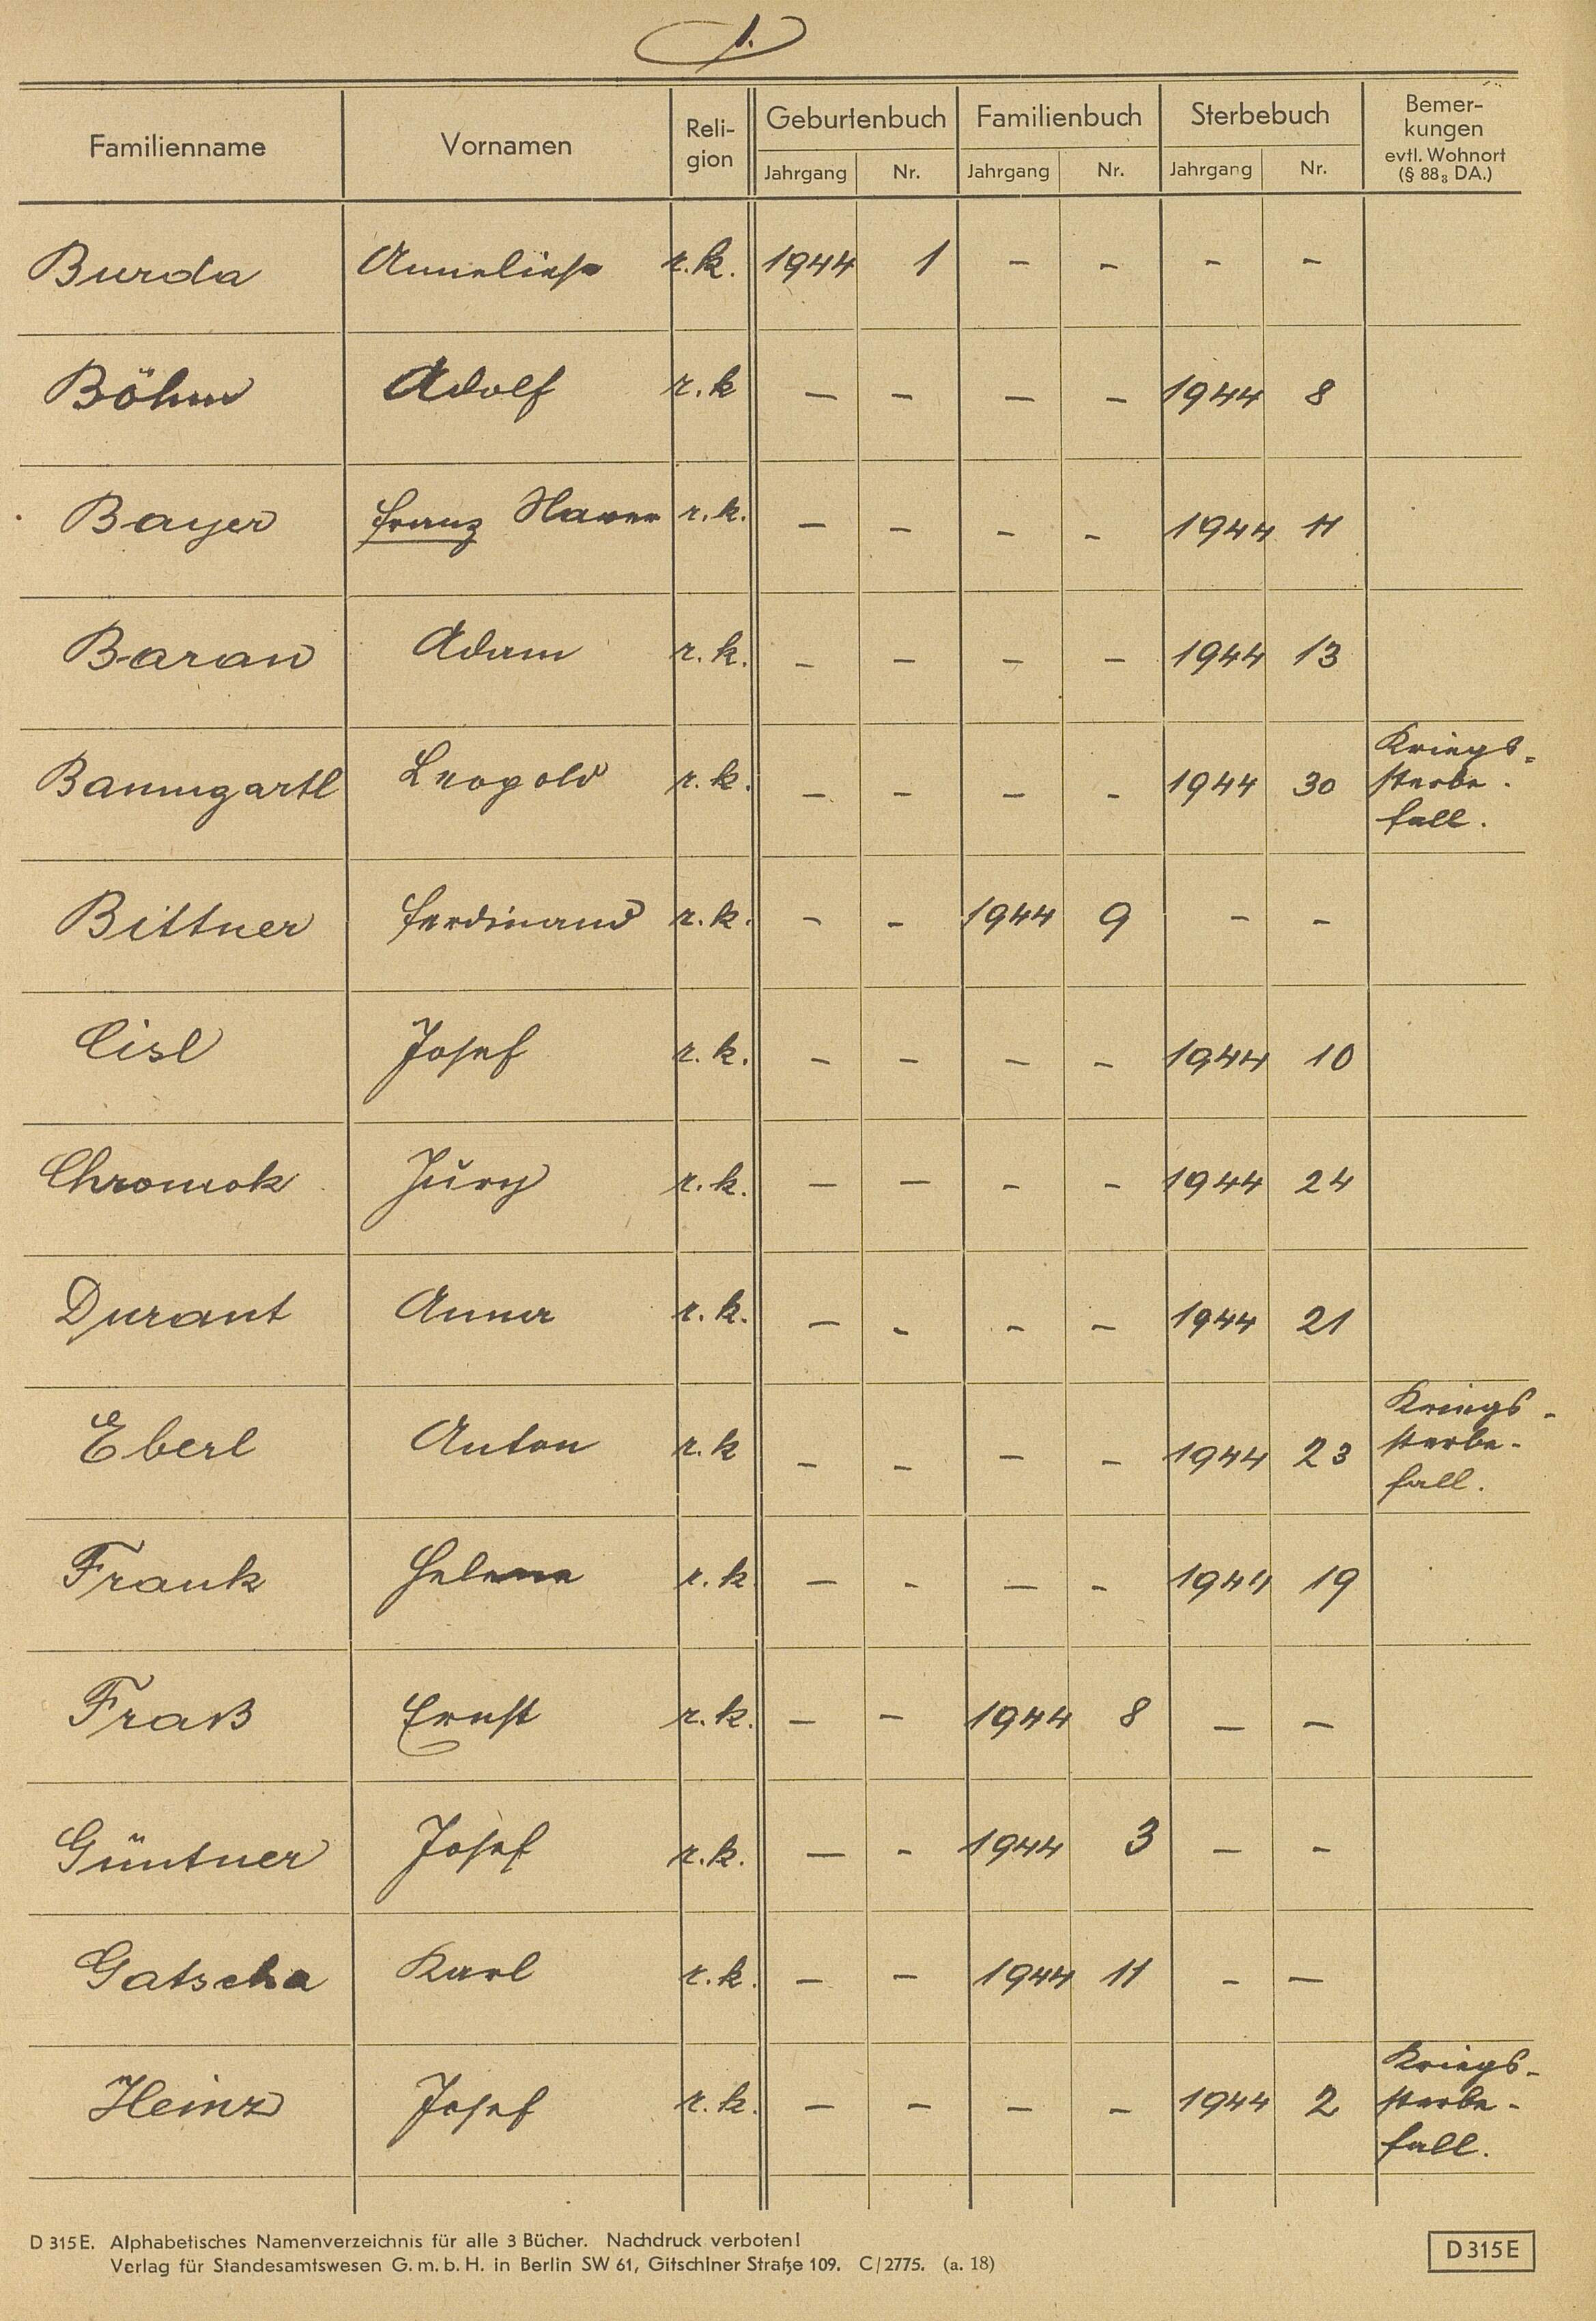 1.
Familienname Vornamen Reli-gion Geburtenbuch Familienbuch Sterbebuch Bemer-kungen evtl. Wohnort (§ 88₃ DA.)
Jahrgang Nr. Jahrgang Nr. Jahrgang Nr.
Burda Anneliese r.k. 1944 1 – – – –
Böhm Adolf r.k – – – – 1944 8
Bayer Franz Xaver r.k. – – – – 1944 11
Baran Adam r.k. – – – – 1944 13
Baumgartl Leopold r.k. – – – – 1944 30 Kriegs-sterbe-fall.
Bittner Ferdinand r.k. – – 1944 9 – –
Cisl Josef r.k. – – – – 1944 10
Chromok Jury r.k. – – – – 1944 24
Durant Anna r.k. – – – – 1944 21
Eberl Anton r.k – – – – 1944 23 Kriegs-sterbe-fall.
Frank Helena r.k – – – – 1944 19
Fraß Ernst r.k. – – 1944 8 – –
Güntner Josef r.k. – – 1944 3 – –
Gatscha Karl r.k. – – 1944 11 – –
Heinz Josef r.k. – – – – 1944 2 Kriegs-sterbe-fall.
D 315 E. Alphabetisches Namenverzeichnis für alle 3 Bücher. Nachdruck verboten!
Verlag für Standesamtswesen G. m. b. H. in Berlin SW 61, Gitschiner Straße 109. C/2775. (a. 18)
D 315 E